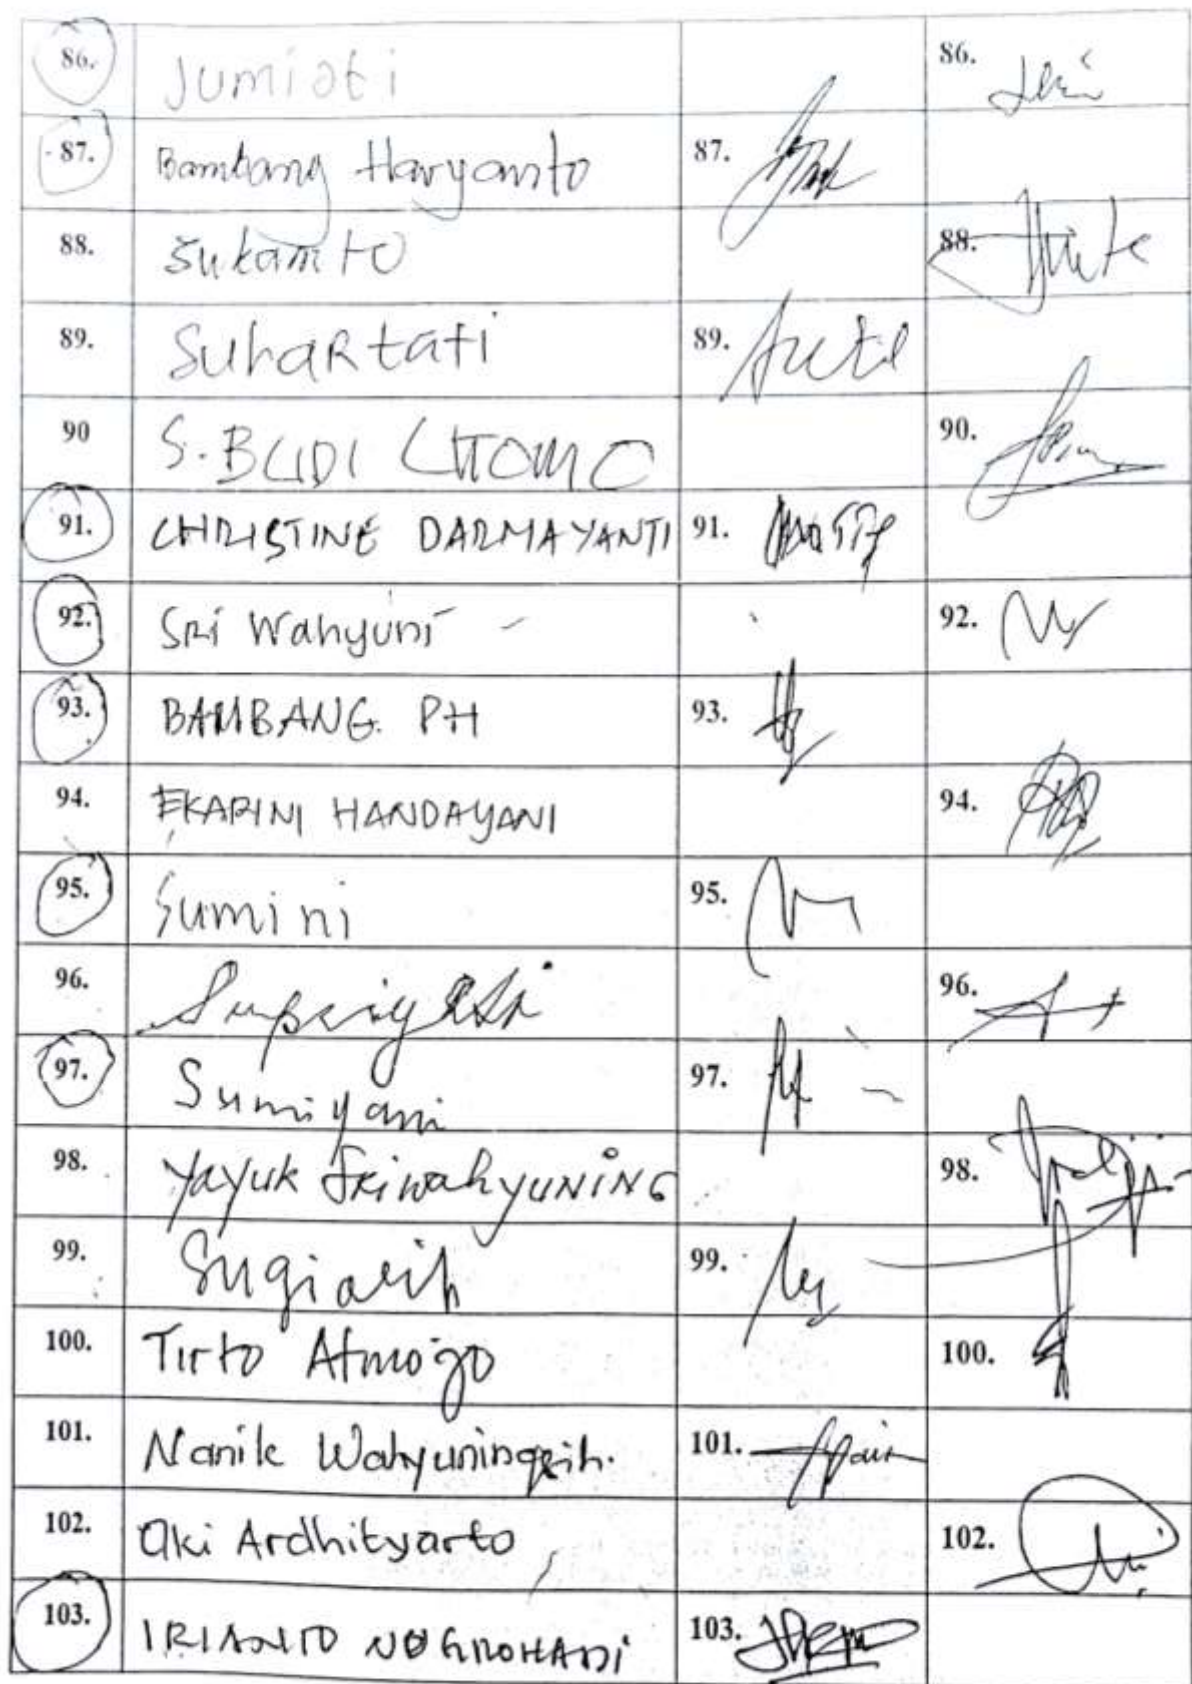 86. Jumiati 86.
87. Bambang Haryanto 87.
88. Sukamto 88.
89. Suhartati 89.
90 S. BUDI UTOMO 90.
91. CHRISTINE DARMAYANTI 91.
92. Sri Wahyuni - 92.
93. BAMBANG PH 93.
94. EKARINI HANDAYANI 94.
95. Sumini 95.
96. 96.
97. Sumiyani 97.
98. Yayuk Sriwahyuning 98.
99. Sugiarsih 99.
100. Tirto Atmojo 100.
101. Nanik Wahyuningsih. 101.
102. Oki Ardhityarto 102.
103. IRIANTO NUGROHADI 103.